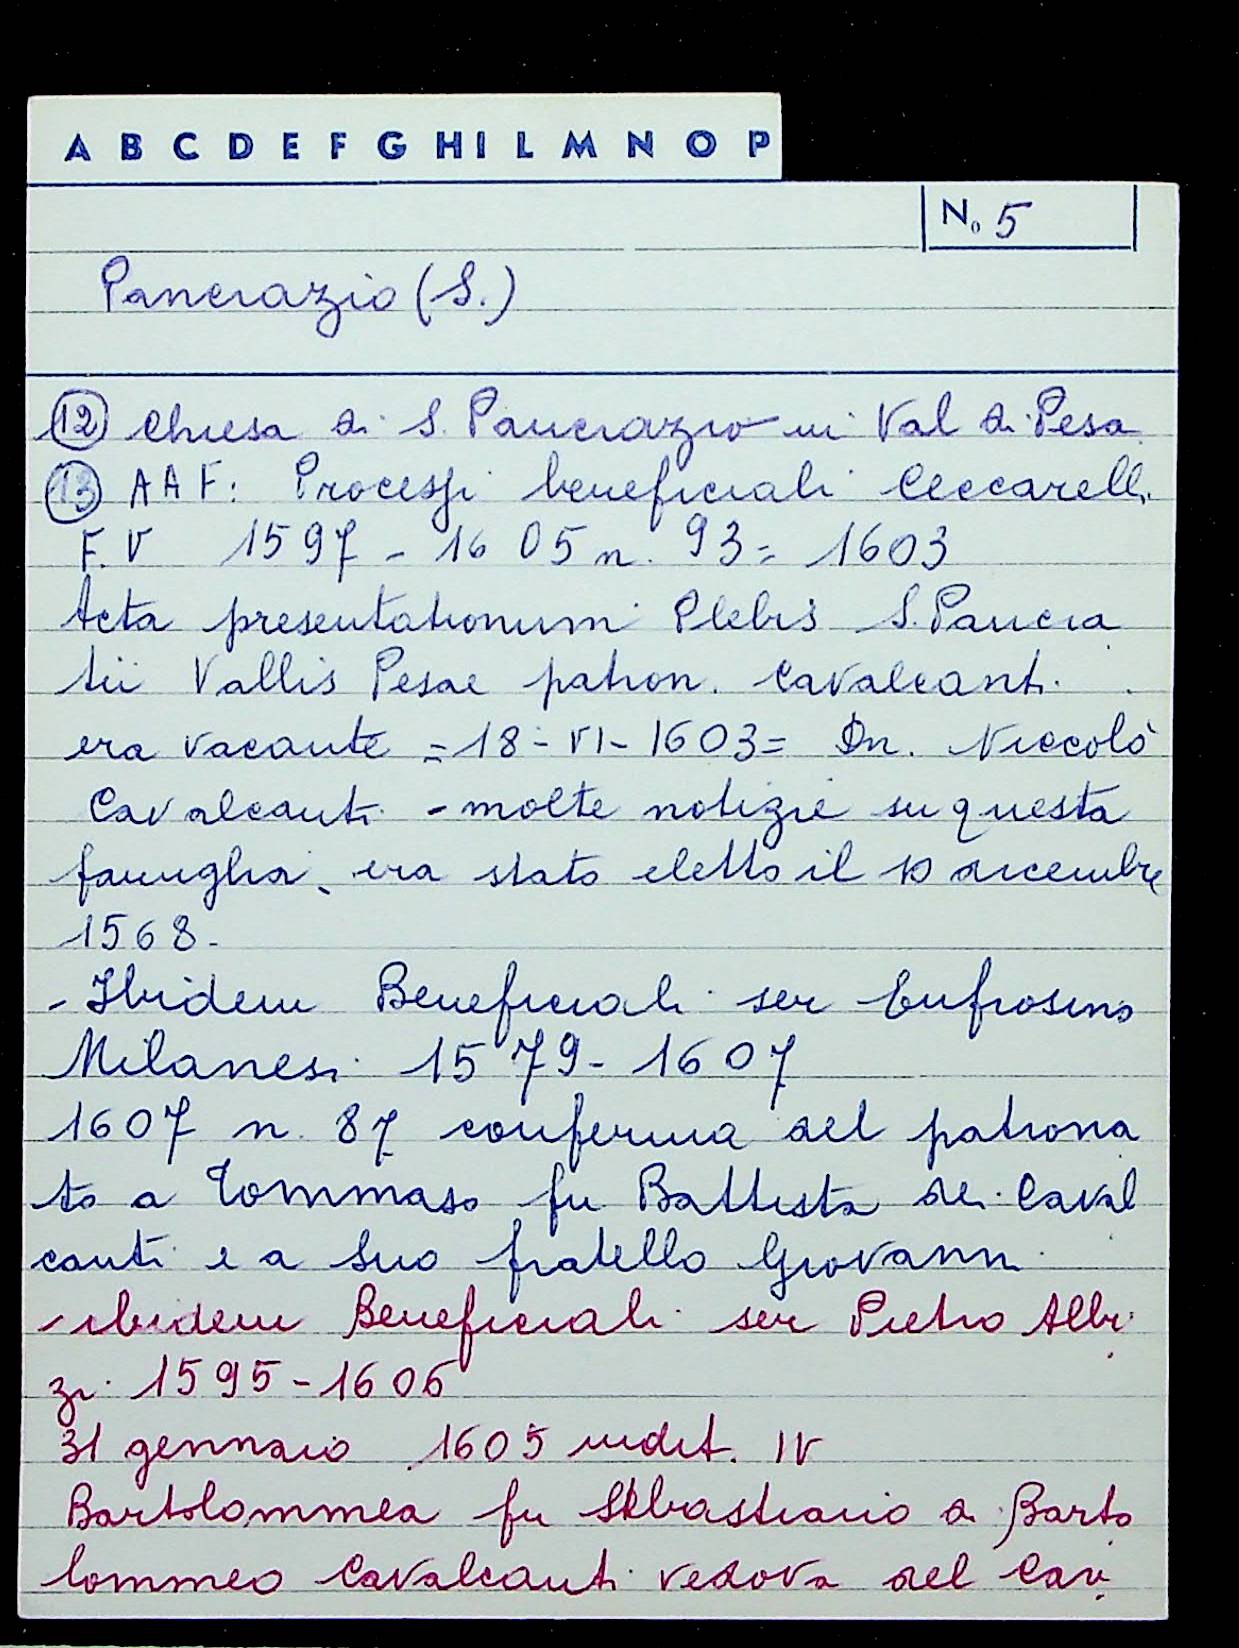 A B C D E F G H I L M N O P
N. 5
Pancrazio (S.)
12 Chiesa di S. Pancrazio in Val di Pesa
13 AAF: Processi beneficiali Ceccarelli
F. V 1597 - 1605 n. 93 = 1603
Acta presentationum Plebis S. Pancra
tii Vallis Pesae patron. Cavalcanti.
era vacante = 18 - VI - 1603 = Dn. Niccolò
Cavalcanti - molte notizie su questa
famiglia - era stato eletto il 10 dicembre
1568 -
- Ibidem Beneficiali ser Eufrosino
Milanesi 1579 - 1607
1607 n. 87 conferma del patrona
to a Tommaso fu Battista dei Caval
canti e a suo fratello Giovanni
- ibidem Beneficiali ser Pietro Albi
zi 1595 - 1606
31 gennaio 1605 indit. IV
Bartolommea fu Sebastiano di Barto
lommeo Cavalcanti vedova del Cav.